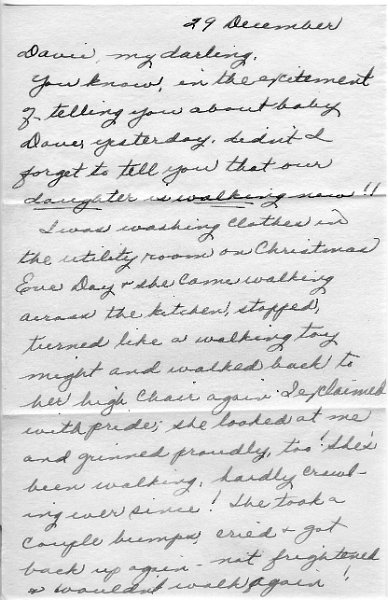 29 December
Davie, my darling,
You know, in the excitement
of telling you about baby
Dave, yesterday, didn't I
forget to tell you that our
daughter is walking now!!
I was washing clothes in
the utility room on Christmas
Eve Day & she came walking
across the kitchen, stopped,
turned like a walking toy
might and walked back to
her high chair again. I exclaimed
with pride; she looked at me
and grinned proudly, too! She's
been walking, hardly crawl-
ing ever since! She took a
couple bumps, cried & got
back up again - not frightened
& wouldn't walk again!